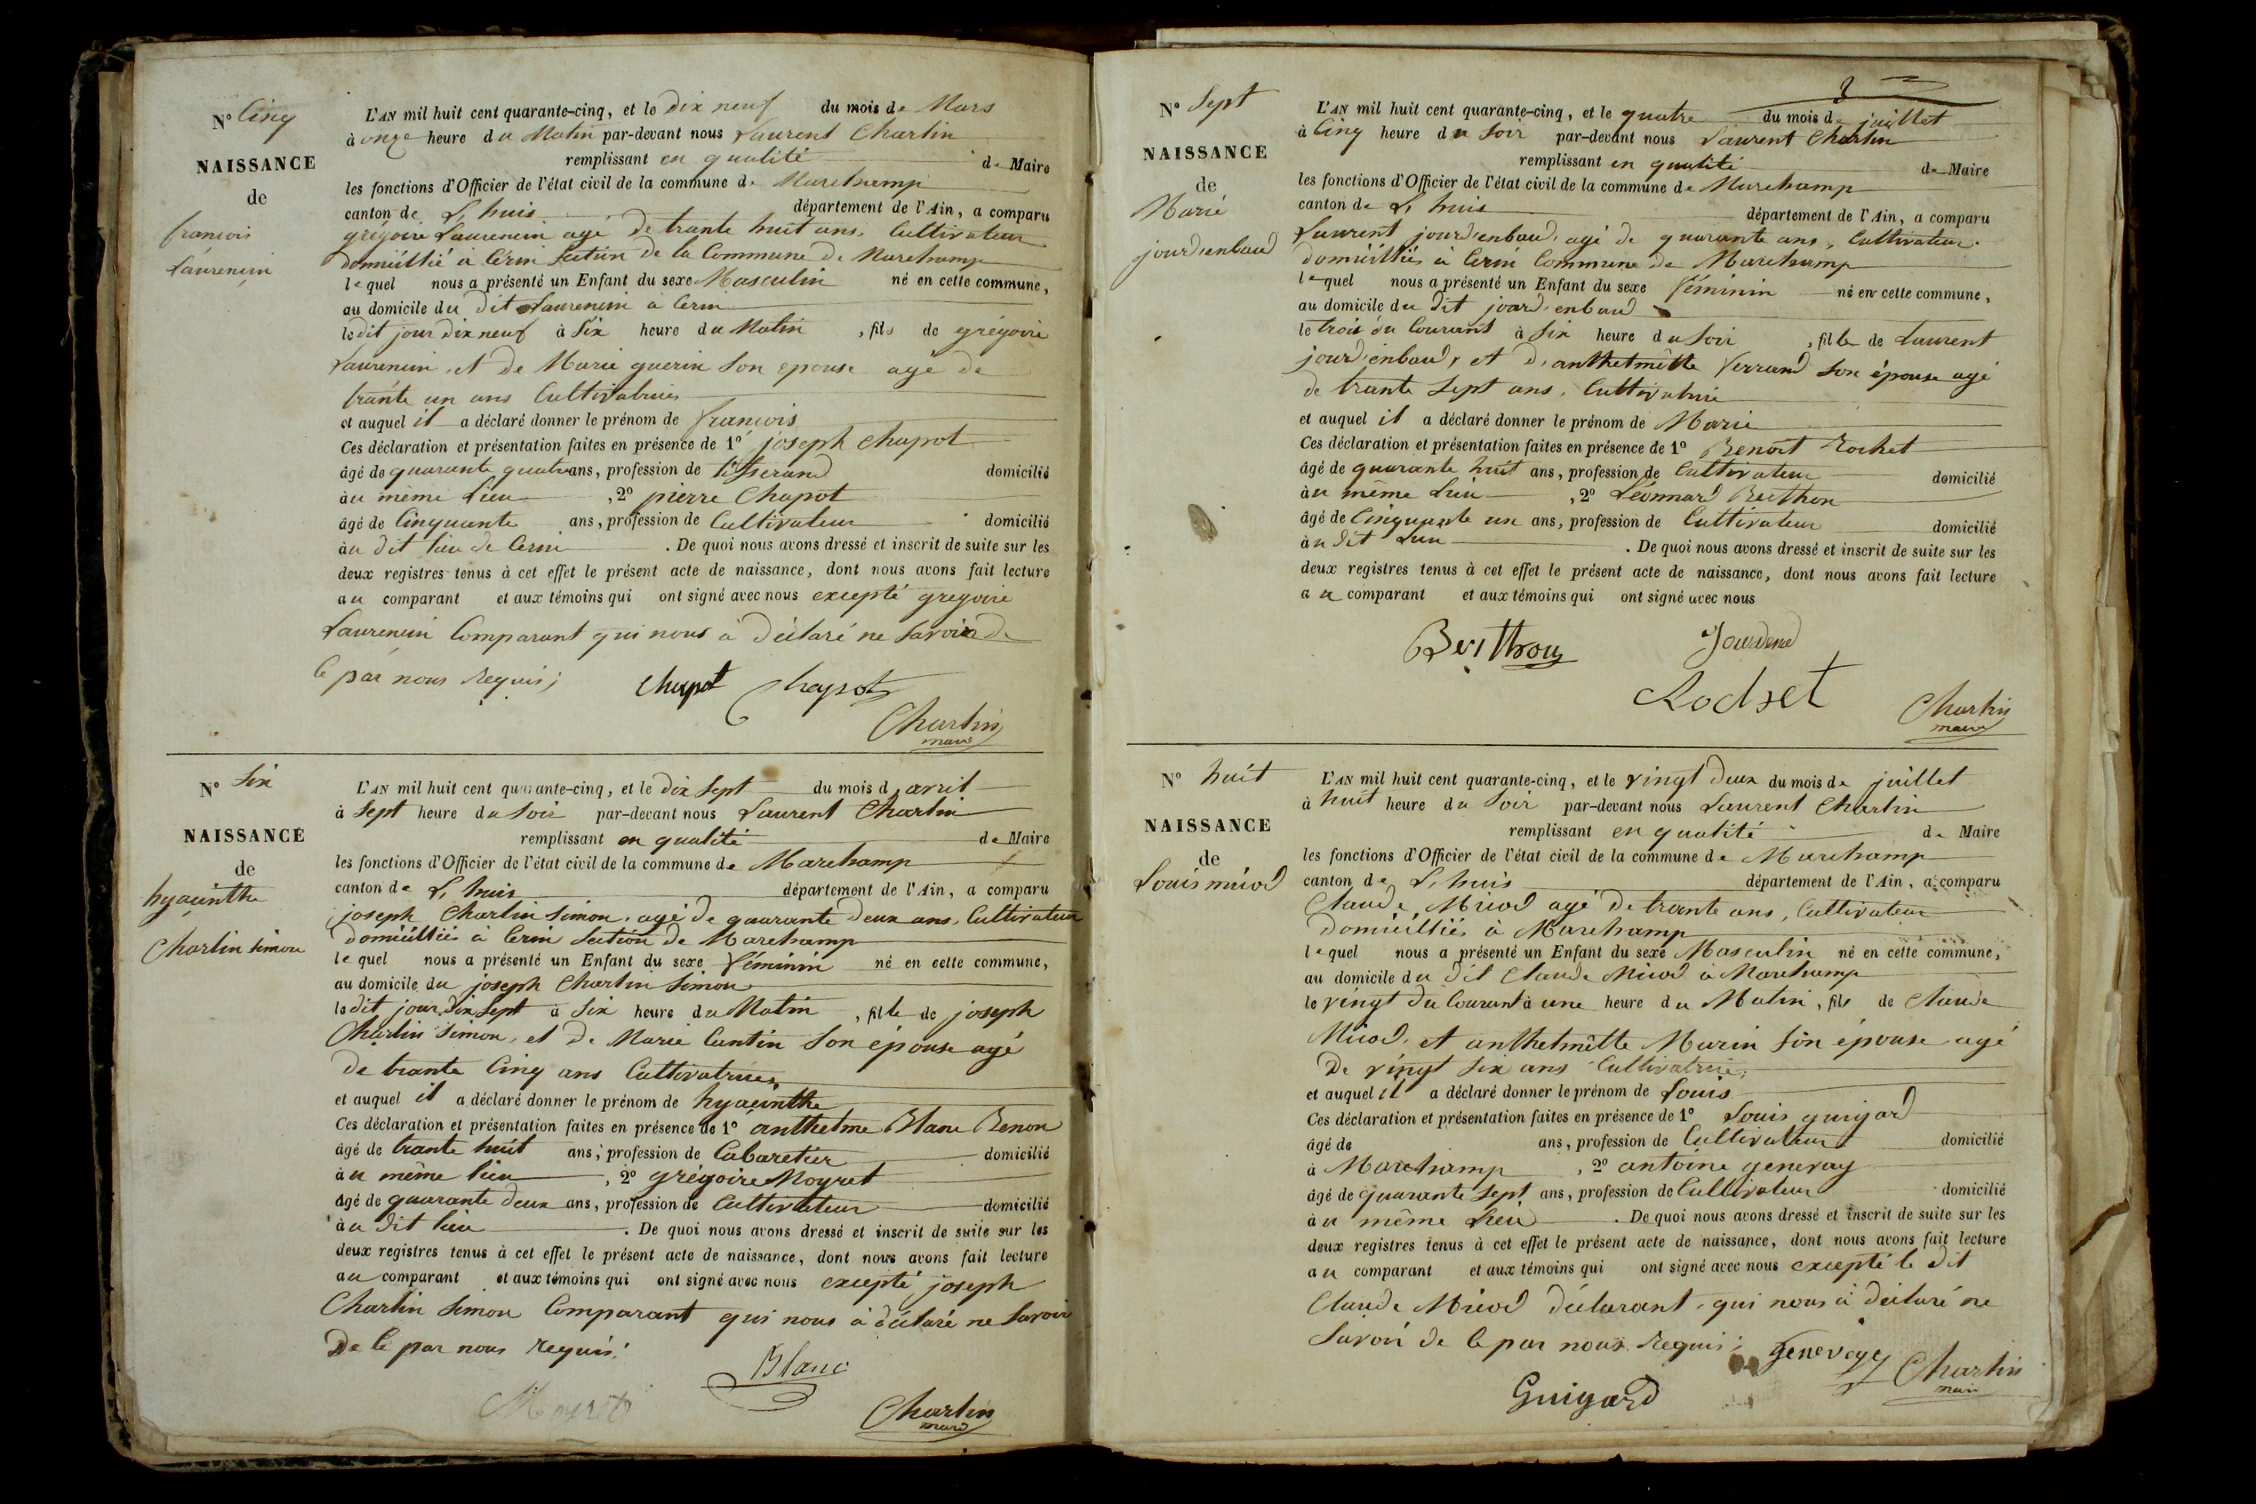 N° Cinq
NAISSANCE
de
francois
Laurencin
L'AN mil huit cent quarante-cinq, et le dix neuf du mois de Mars
à onze heure du Matin par-devant nous Laurent Charlin
remplissant en qualité de Maire
les fonctions d'Officier de l'état civil de la commune de Marchamp
canton de L'huis département de l'Ain, a comparu
grégoire Laurencin agé de trante huit ans, Cultivateur
domicillié à Cerin Section de la Commune de Marchamp
lequel nous a présenté un Enfant du sexe Masculin né en cette commune,
au domicile du dit Laurencin à Cerin
le dit jour dix neuf à Six heure du Matin, fils de grégoire
Laurencin, et de Marie guerin Son epouse agé de
trante un ans Cultivatrice
et auquel il a déclaré donner le prénom de francois
Ces déclaration et présentation faites en présence de 1° joseph Chapot
âgé de quarante quatre ans, profession de tisserand domicilié
à u même Lieu, 2° pierre Chapot
âgé de Cinquante ans, profession de Cultivateur domicilié
à u dit lieu de Cerin. De quoi nous avons dressé et inscrit de suite sur les
deux registres tenus à cet effet le présent acte de naissance, dont nous avons fait lecture
au comparant et aux témoins qui ont signé avec nous excepté gregoire
Laurencin Comparant qui nous à déclaré ne Savoir de
ce par nous requis;
Chapot Chapot
Charlin
maire
N° Six
NAISSANCE
de
hyacinthe
Charlin Simon
L'AN mil huit cent quarante-cinq, et le dix Sept du mois d avril
à Sept heure du Soir par-devant nous Laurent Charlin
remplissant en qualité de Maire
les fonctions d'Officier de l'état civil de la commune de Marchamp
canton de L'huis département de l'Ain, a comparu
joseph Charlin Simon, agé de quarante deux ans, Cultivateur
domicillié à Cerin Section de Marchamp
lequel nous a présenté un Enfant du sexe Féminin né en cette commune,
au domicile du joseph Charlin Simon
le dit jour dix Sept à Six heure du Matin, fille de joseph
Charlin Simon, et de Marie Cantin Son épouse agé
de trante Cinq ans Cultivatrice,
et auquel il a déclaré donner le prénom de hyacinthe
Ces déclaration et présentation faites en présence de 1° anthelme Blanc Benon
âgé de trante huit ans, profession de Cabaretier domicilié
à u même lieu, 2° grégoire Moyret
âgé de quarante deux ans, profession de Cultivateur domicilié
à u dit lieu. De quoi nous avons dressé et inscrit de suite sur les
deux registres tenus à cet effet le présent acte de naissance, dont nous avons fait lecture
au comparant et aux témoins qui ont signé avec nous excepté joseph
Charlin Simon Comparant qui nous à déclaré ne Savoir
De ce par nous requis.
Blanc
Moyret
Charlin
maire
N° Sept
NAISSANCE
de
Marie
jourd'enbaud
L'AN mil huit cent quarante-cinq, et le quatre du mois de juillet
à Cinq heure du Soir par-devant nous Laurent Charlin
remplissant en qualité de Maire
les fonctions d'Officier de l'état civil de la commune de Marchamp
canton de L'huis département de l'Ain, a comparu
Laurent jourd'enbaud, agé de quarante ans, Cultivateur
domicillié à Cerin Commune de Marchamp
lequel nous a présenté un Enfant du sexe Féminin né en cette commune,
au domicile du dit jourd'enbaud
le trois du Courant à Six heure du Soir, fille de Laurent
jourd'enbaud, et d'anthelmette Ferrand Son épouse agé
de trante Sept ans, Cultivatrice
et auquel il a déclaré donner le prénom de Marie
Ces déclaration et présentation faites en présence de 1° Benoit Rochet
âgé de quarante huit ans, profession de Cultivateur domicilié
à u même Lieu, 2° Léonnard Berthon
âgé de Cinquante un ans, profession de Cultivateur domicilié
à u dit Lieu. De quoi nous avons dressé et inscrit de suite sur les
deux registres tenus à cet effet le présent acte de naissance, dont nous avons fait lecture
au comparant et aux témoins qui ont signé avec nous
Berthon
Rochet
Charlin
maire
N° huit
NAISSANCE
de
Louis micod
L'AN mil huit cent quarante-cinq, et le vingt deux du mois de juillet
à huit heure du Soir par-devant nous Laurent Charlin
remplissant en qualité de Maire
les fonctions d'Officier de l'état civil de la commune de Marchamp
canton de L'huis département de l'Ain, a comparu
Claude Micod agé de trante ans, Cultivateur
domicillié à Marchamp
lequel nous a présenté un Enfant du sexe Masculin né en cette commune,
au domicile du dit Claude Micod à Marchamp
le vingt du Courant à une heure du Matin, fils de Claude
Micod, et anthelmette Marin Son épouse agé
De vingt Six ans Cultivatrice,
et auquel il a déclaré donner le prénom de Louis
Ces déclaration et présentation faites en présence de 1° Louis guigard
âgé de ans, profession de Cultivateur domicilié
à Marchamp, 2° antoine genevay
âgé de quarante Sept ans, profession de Cultivateur domicilié
à u même Lieu. De quoi nous avons dressé et inscrit de suite sur les
deux registres tenus à cet effet le présent acte de naissance, dont nous avons fait lecture
au comparant et aux témoins qui ont signé avec nous excepté le dit
Claude Micod déclarant, qui nous à déclaré ne
Savoir de ce par nous requis;
genevay
Charlin
maire
Guigard